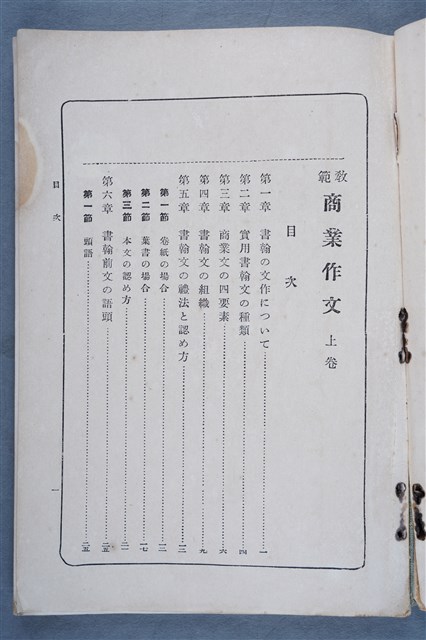 教範 商業作文 上卷
目次
第一章 書翰の文作について 一
第二章 實用書翰文の種類 四
第三章 商業文の四要素 六
第四章 書翰文の組織 九
第五章 書翰文の禮法と認め方 一二
第一節 卷紙の場合 一二
第二節 葉書の場合 一七
第三節 本文の認め方 二一
第六章 書翰前文の語頭 二五
第一節 頭語 二五
目次 一